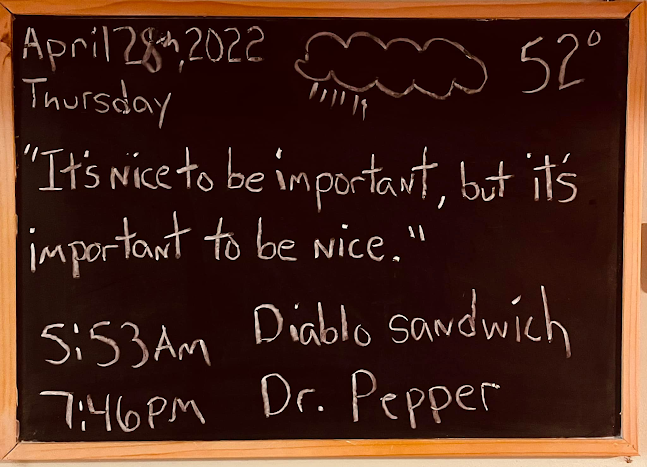 April 28th, 2022
52°
Thursday
"It's nice to be important, but it's
important to be nice."
5:53 AM
Diablo sandwich
7:46 PM
Dr. Pepper